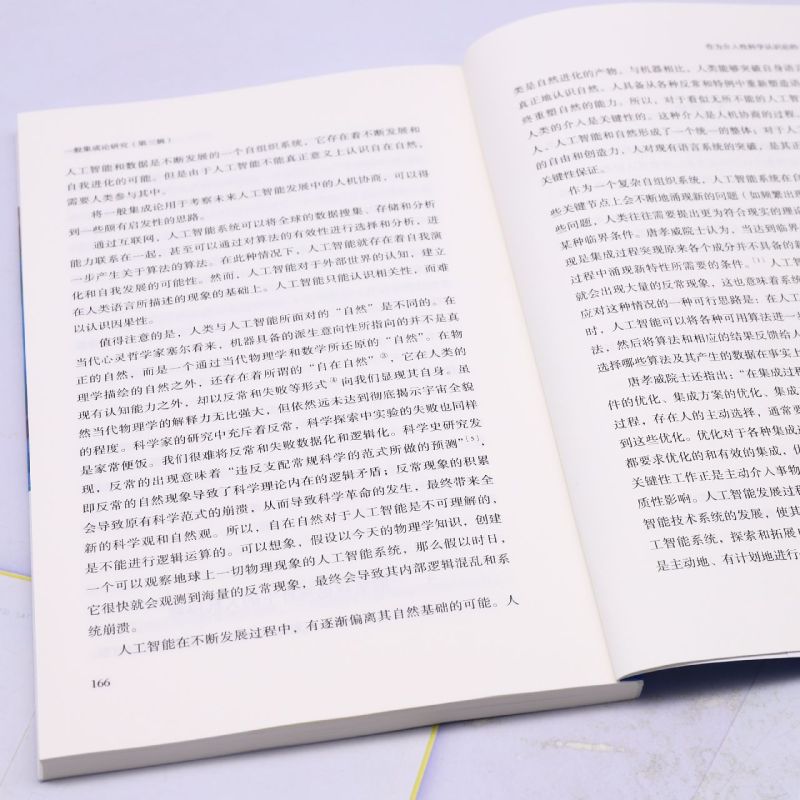 一般集成论研究（第三辑）
人工智能和数据是不断发展的一个自组织系统，它存在着不断发展和
自我进化的可能。但是由于人工智能不能真正意义上认识自在自然，
需要人类参与其中。
将一般集成论用于考察未来人工智能发展中的人机协商，可以得
到一些颇有启发性的思路。
通过互联网，人工智能系统可以将全球的数据搜集、存储和分析
能力联系在一起，甚至可以通过对算法的有效性进行选择和分析，进
一步产生关于算法的算法。在此种情况下，人工智能就存在着自我演
化和自我发展的可能性。然而，人工智能对于外部世界的认知，建立
在人类语言所描述的现象的基础上。人工智能只能认识相关性，而难
以认识因果性。
值得注意的是，人类与人工智能所面对的“自然”是不同的。在
当代心灵哲学家塞尔看来，机器具备的派生意向性所指向的并不是真
正的自然，而是一个通过当代物理学和数学所还原的“自然”。在物
理学描绘的自然之外，还存在着所谓的“自在自然”，它在人类的
现有认知能力之外，却以反常和失败等形式向我们显现其自身。虽
然当代物理学的解释力无比强大，但依然远未达到彻底揭示宇宙全貌
的程度。科学家的研究中充斥着反常，科学探索中实验的失败也同样
是家常便饭。我们很难将反常和失败数据化和逻辑化。科学史研究发
现，反常的出现意味着“违反支配常规科学的范式所做的预测”［5］，
即反常的自然现象导致了科学理论内在的逻辑矛盾；反常现象的积累
会导致原有科学范式的崩溃，从而导致科学革命的发生，最终带来全
新的科学观和自然观。所以，自在自然对于人工智能是不可理解的，
是不能进行逻辑运算的。可以想象，假设以今天的物理学知识，创建
一个可以观察地球上一切物理现象的人工智能系统，那么假以时日，
它很快就会观测到海量的反常现象，最终会导致其内部逻辑混乱和系
统崩溃。
人工智能在不断发展过程中，有逐渐偏离其自然基础的可能。人
166
作为介入性科学认识论的
类是自然进化的产物。与机器相比，人类能够突破自身语
真正地认识自然。人具备从各种反常和特例中重新塑造语
终重塑自然的能力。所以，对于看似无所不能的人工智能
人类的介入是关键性的。这种介入是人机协商的过程。
人、人工智能和自然形成了一个统一的整体；对于人工
的自由和创造力，人对现有语言系统的突破，是其真正
关键性保证。
作为一个复杂自组织系统，人工智能系统在自
些关键节点上会不断地涌现新的问题（如频繁出现
些问题，人类往往需要提出更为符合现实的理论
某种临界条件。唐孝威院士认为，当达到临界
现是集成过程突现原来各个成分并不具备的新
过程中涌现新特性所需要的条件。［1］人工智
就会出现大量的反常现象，这也意味着系统
应对这种情况的一种可行思路是：在人工
时，人工智能可以将各种可用算法进一步
法，然后将算法和相应的结果反馈给人
选择哪些算法及其产生的数据在事实上
唐孝威院士还指出：“在集成过程
件的优化、集成方案的优化、集成
过程，存在人的主动选择，通常要
到这些优化。优化对于各种集成过
都要求优化的和有效的集成，优
关键性工作正是主动介入事物
质性影响。人工智能发展过程
智能技术系统的发展，使其
工智能系统，探索和拓展
是主动地、有计划地进行